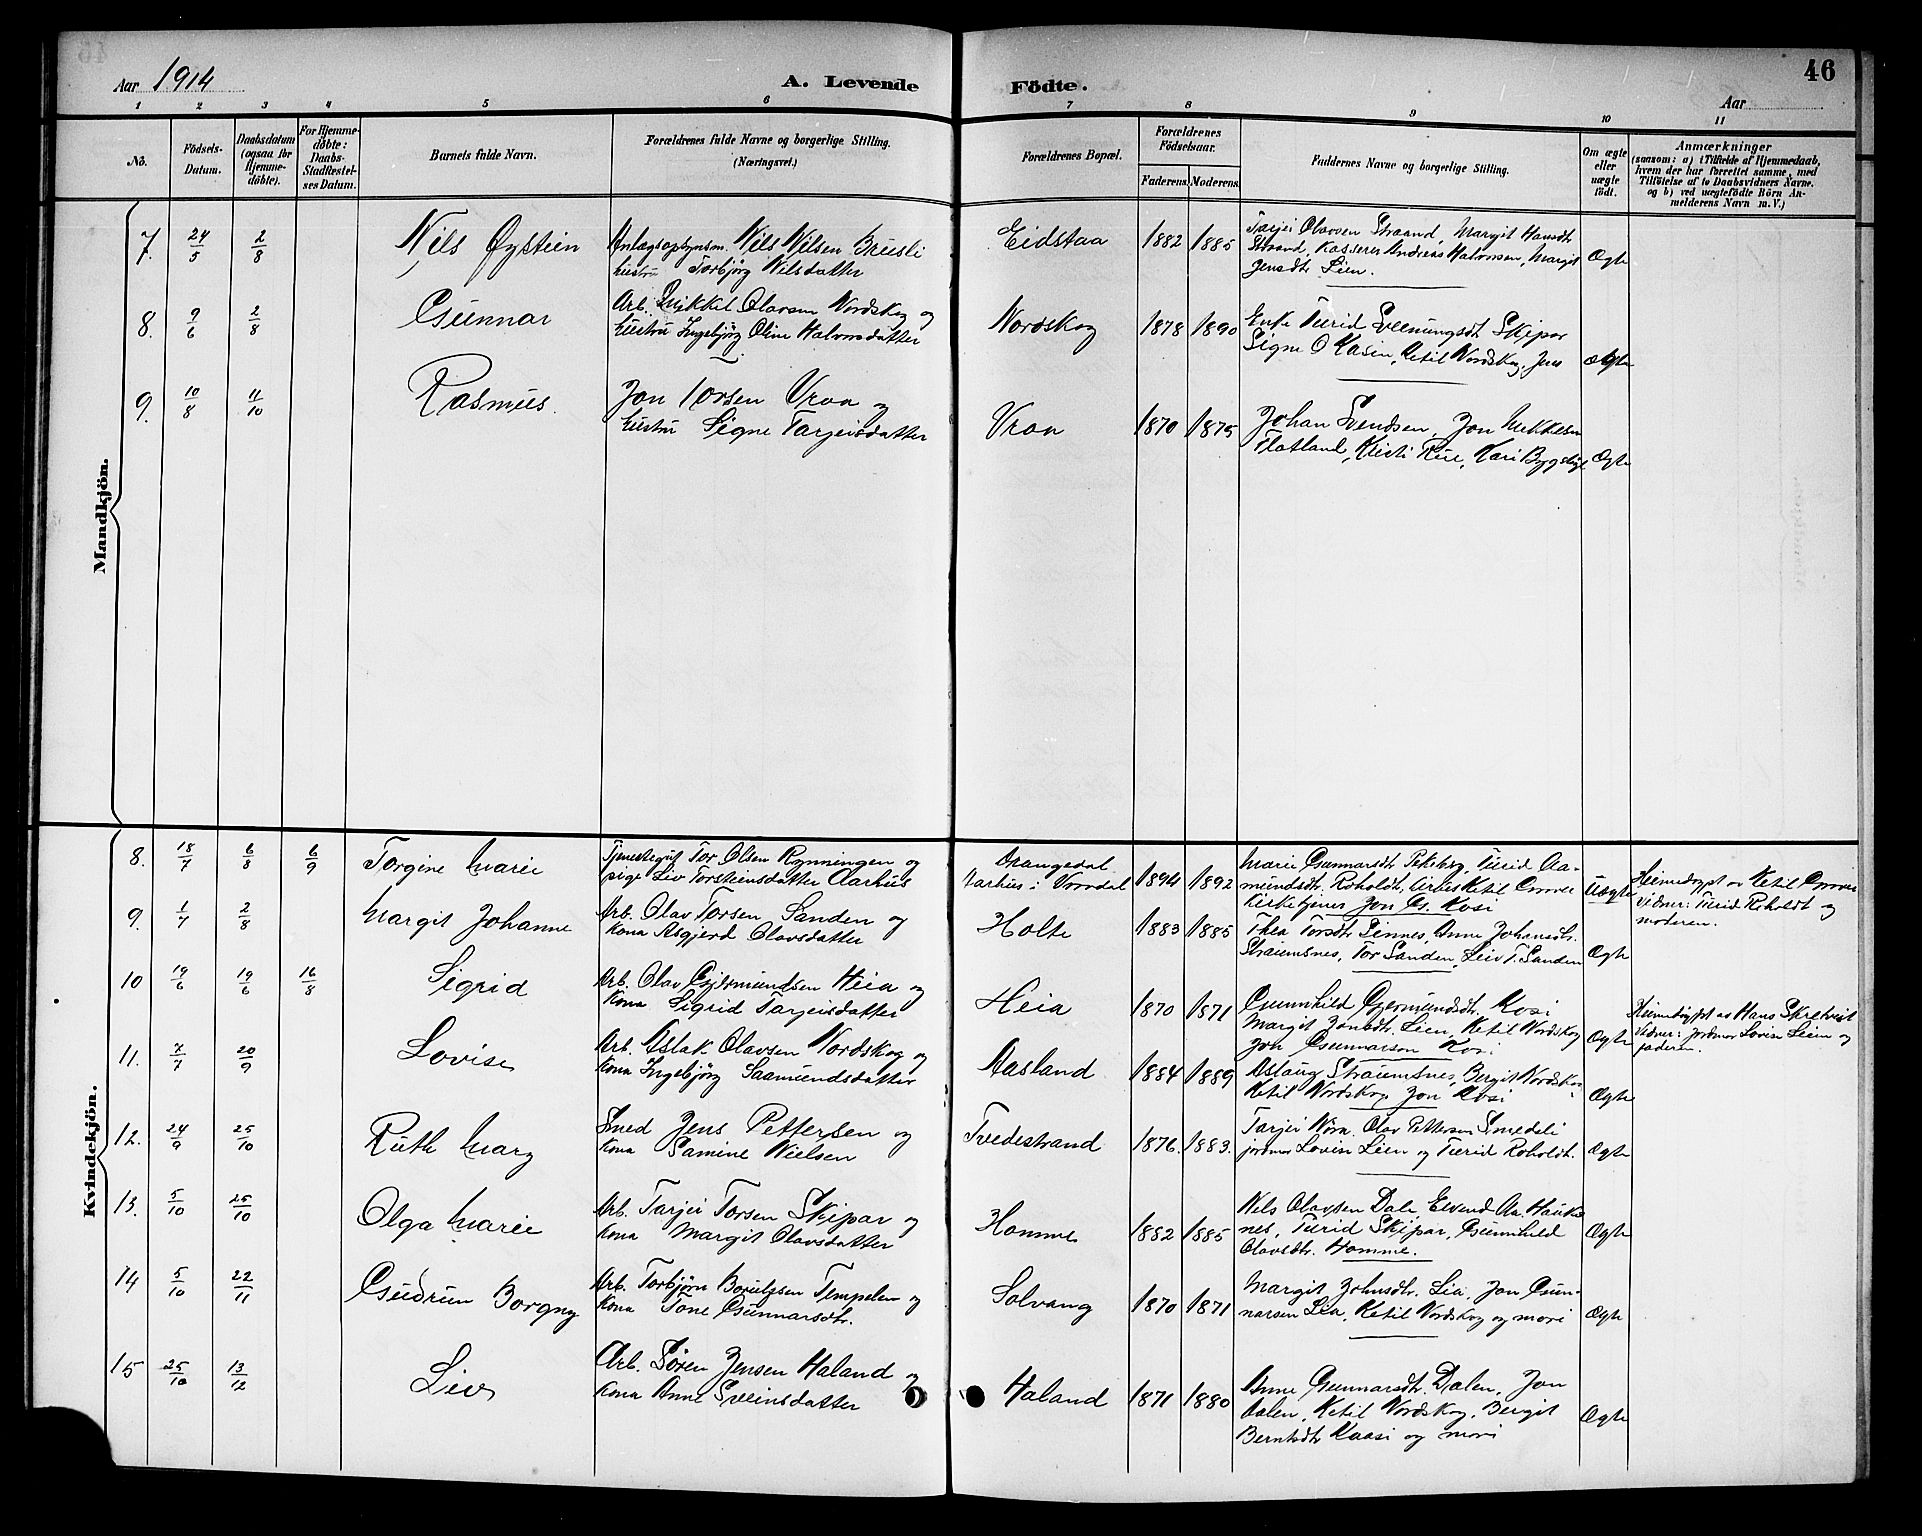 Aar 1914
A. Levende
Födte.
46
Aar
1 2 3 4 5 6 7 8 9 10 11
No.
Födsels-
Datum.
Daabsdatum
(ogsaa for
Hjemme-
døbte).
For Hjemme-
døbte:
Daabs-
Stadfæstel-
ses Datum.
Barnets fulde Navn.
Forældrenes fulde Navne og borgerlige Stilling.
(Næringsvei.)
Forældrenes Bopæl.
Forældrenes
Födselsaar.
Faderens Moderens
Faddernes Navne og borgerlige Stilling.
Om ægte
eller
uægte
født.
Anmærkninger
(saasom: a) i Tilfælde af Hjemmedaab,
hvem der har forrettet samme, med
Tilføielse af to Daabsvidners Navne.
og b) ved uægtefødte Börn An-
melderens Navn m. V.)
Mandkjön.
7. 24/5 2/8 Nils Øystein
Anlægsopsynsm. Nils Nilsen Brusli
hustru Torbjørg Nilsdatter
Eidstaa 1882 1885
Tarjei Olavsen Straand, Margit Hansdtr
Straand, Kasserer Andreas Halvorsen, Margit
Jensdtr Lien.
Ægte
8. 9/6 2/8 Gunnar
Arb. Mikkel Olavsen Nordskog og
hustru Ingebjörg Oline Halvorsdatter
Nordskog 1878 1890
Enke Turid Sveinungsdt. Skipar
Signe O Kasin, Ketil Nordskog, Jens
Ægte
9. 10/8 11/10 Rasmus.
Jon Torsen Vraa og
hustru Signe Tarjeisdatter
Vraa 1870 1875
Johan Svendsen, Jon Mikkelsen
Flatland, Kristi Rue, Kari
Ægte
Kvindekjön.
8. 18/7 6/8 6/9 Torgine Marie
Tjenestegut Tor Olsen Rynningen og
pige Liv Torsteinsdatter Aarhus
Drangedal
Aarhus i Vraadal 1894 1892
Marie Gunnarsdtr. Turid Aa-
mundsdtr. Roholdt, Ketil
Kirketjener Jon G. Kosi
Uægte
Heimedøypt av Ketil
Vidner: Turid Roholdt og
moderen.
9. 1/7 2/8 Margit Johanne
Arb. Olav Torsen Sanden og
Kona Asgjerd Olavsdatter
Holte 1883 1885
Thea Torsdtr Tinnes, Anne Johansdtr.
Straumsnes, Tor Sanden, Leiv T. Sanden
Ægte
10 19/6 19/6 16/8 Sigrid
Arb. Olav Gjermundsen Heia og
Kona Sigrid Tarjeisdatter
Heia 1870 1871
Gunnhild Gjermundsdtr. Kosi
Margit Jonsdtr. Lien, Ketil Nordskog
Jon Gunnarson Kosi
Ægte
Heimedøypt av Hans Skretveit
Vidner: jordmor Lovise Lien og
faderen.
11. 7/7 20/9 Lovise
Arb. Aslak Olavsen Nordskog og
Kona Ingebjörg Saamundsdatter
Aasland 1884 1889
Aslaug Straumsnes, Bergit Nordskog
Ketil Nordskog Jon Kosi
Ægte
12. 24/9 25/10 Ruth Mary
Smed Jens Pettersen og
Kona Samine Nielsen
Tvedestrand 1876. 1883.
Tarjei Vraa. Olav Pettersen Smedeli
jordmor Lovise Lien og Turid Roholdt.
Ægte
13. 5/10 25/10 Olga Marie
Arb. Tarjei Torsen Skipar og
Kona Margit Olavsdatter
Homme 1882 1885
Nils Olavsen Dale, Eivend Aa. Hauke
nes, Turid Skipar, Gunnhild
Olavsdtr. Homme.
Ægte
14 5/10 22/11 Gudrun Borgny
Arb. Torbjørn Tempelen og
Kona Tone Gunnarsdtr.
Solvang 1870 1871
Margit Johnsdtr. Lia, Jon Gun-
narsen Lia, Ketil Nordskog og mori
Ægte
15 25/10 13/12 Liv
Arb. Søren Jensen Haland og
Kona Anne Sveinsdatter
Haland 1871 1880
Anne Gunnarsdtr. Dalen, Jon
Dalen, Ketil Nordskog, Bergit
Berntsdtr Kaasi og mori
Ægte